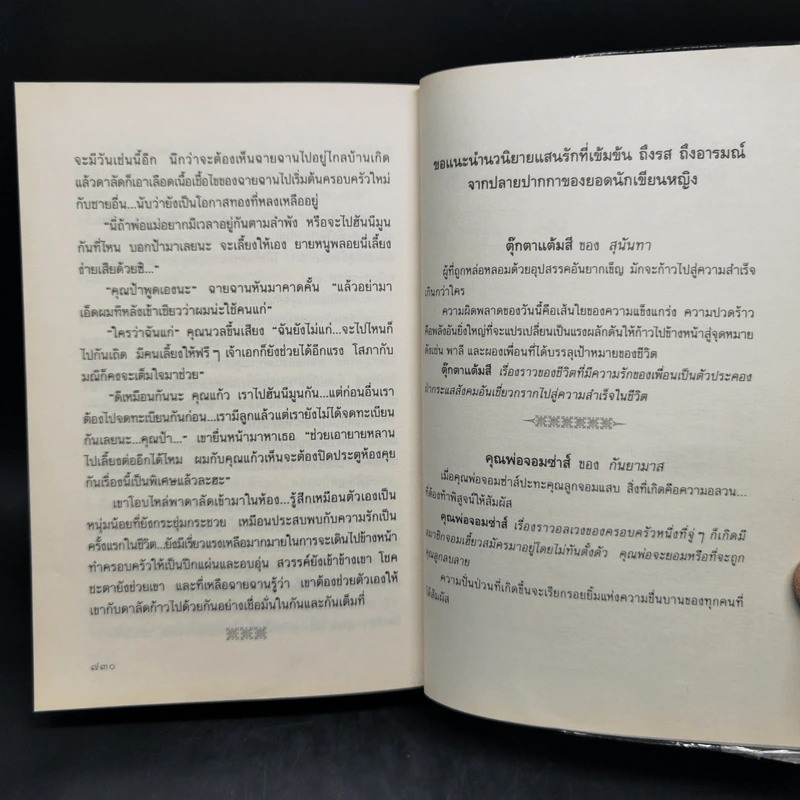 จะมีวันเช่นนี้อีก นึกว่าจะต้องเห็นฉายฉานไปอยู่ไกลบ้านเกิด
แล้วดาลัดก็เอาเลือดเนื้อเชื้อไขของฉายฉานไปเริ่มต้นครอบครัวใหม่
กับชายอื่น...นับว่ายังเป็นโอกาสทองที่หลงเหลืออยู่
"นี่ถ้าพ่อแม่อยากมีเวลาอยู่กันตามลำพัง หรือจะไปฮันนีมูน
กันที่ไหน บอกป้ามาเลยนะ จะเลี้ยงให้เอง ยายหนูพลอยนี่เลี้ยง
ง่ายเสียด้วยซิ..."
"คุณป้าพูดเองนะ" ฉายฉานหันมาคาดคั้น "แล้วอย่ามา
เอ็ดผมทีหลังเข้าเชียวว่าผมน่ะใช้คนแก่"
"ใครว่าฉันแก่" คุณนวลขึ้นเสียง "ฉันยังไม่แก่...จะไปไหนก็
ไปกันเถิด มีคนเลี้ยงให้ฟรีๆ เจ้าเอกก็ยังช่วยได้อีกแรง โสภากับ
มณีก็คงจะเต็มใจมาช่วย"
"ดีเหมือนกันนะ คุณแก้ว เราไปฮันนีมูนกัน...แต่ก่อนอื่นเรา
ต้องไปจดทะเบียนกันก่อน...เรามีลูกแล้วแต่เรายังไม่ได้จดทะเบียน
กันเลยนะ...คุณป้า..." เขายื่นหน้ามาหาเธอ "ช่วยเอายายหลาน
ไปเลี้ยงต่ออีกได้ไหม ผมกับคุณแก้วเห็นจะต้องปิดประตูห้องคุย
กันเรื่องนี้เป็นพิเศษแล้วละฮะ"
เขาโอบไหล่พาดาลัดเข้ามาในห้อง...รู้สึกเหมือนตัวเองเป็น
หนุ่มน้อยที่ยังกระชุ่มกระชวย เหมือนประสบพบกับความรักเป็น
ครั้งแรกในชีวิต...ยังมีเรี่ยวแรงเหลือมากมายในการจะเดินไปข้างหน้า
ทำครอบครัวให้เป็นปึกแผ่นและอบอุ่น สวรรค์ยังเข้าข้างเขา โชค
ชะตายังช่วยเขา และที่เหลือฉายฉานรู้ว่า เขาต้องช่วยตัวเองให้
เขากับดาลัดก้าวไปด้วยกันอย่างเชื่อมั่นในกันและกันเต็มที่
๗๓๐
ขอแนะนำนวนิยายแสนรักที่เข้มข้น ถึงรส ถึงอารมณ์
จากปลายปากกาของยอดนักเขียนหญิง
ตุ๊กตาแต้มสี ของ สุนันทา
ผู้ที่ถูกหล่อหลอมด้วยอุปสรรคอันยากเข็ญ มักจะก้าวไปสู่ความสำเร็จ
เกินกว่าใคร
ความผิดพลาดของวันนี้คือเส้นใยของความแข็งแกร่ง ความปวดร้าว
คือพลังอันยิ่งใหญ่ที่จะแปรเปลี่ยนเป็นแรงผลักดันให้ก้าวไปข้างหน้าสู่จุดหมาย
ดังเช่น พาลี และผองเพื่อนที่ได้บรรลุเป้าหมายของชีวิต
ตุ๊กตาแต้มสี เรื่องราวของชีวิตที่มีความรักของเพื่อนเป็นตัวประคอง
ฝ่ากระแสสังคมอันเชี่ยวกรากไปสู่ความสำเร็จในชีวิต
คุณพ่อจอมซ่าส์ ของ กันยามาส
เมื่อคุณพ่อจอมซ่าส์ปะทะคุณลูกจอมแสบ สิ่งที่เกิดคือความอลวน...
ที่ต้องทำพิสูจน์ให้สัมผัส
คุณพ่อจอมซ่าส์ เรื่องราวอลเวงของครอบครัวหนึ่งที่จู่ๆ ก็เกิดมี
สมาชิกจอมเฮี้ยวสมัครมาอยู่โดยไม่ทันตั้งตัว คุณพ่อจะยอมหรือที่จะถูก
คุณลูกลบลาย
ความปั่นป่วนที่เกิดขึ้นจะเรียกรอยยิ้มแห่งความชื่นบานของทุกคนที่
ได้สัมผัส